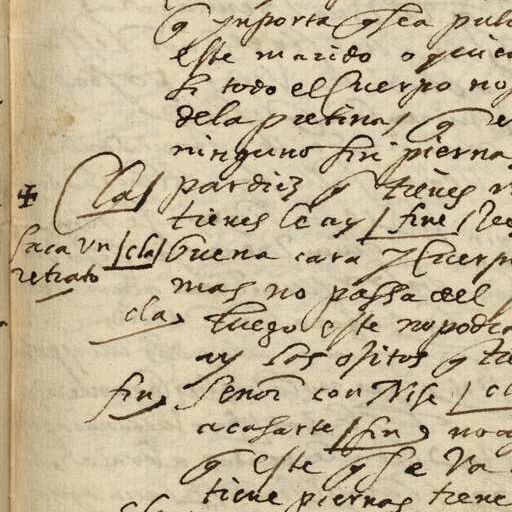 q ynporta q sea puli
este marido o quie
si todo el cuerpo no
de la pretina / q e
ninguno sin pierna
Cla / pardiez q tienes
tienes le ay / fine /
saca Un retrato
/ cla / buena cara y cuerp
mas no passa del
cla luego este no podr
ay los ositos q
fin, señor con Nise /
a casarte / fin, no
q este q se Va
tiene piernas tiene